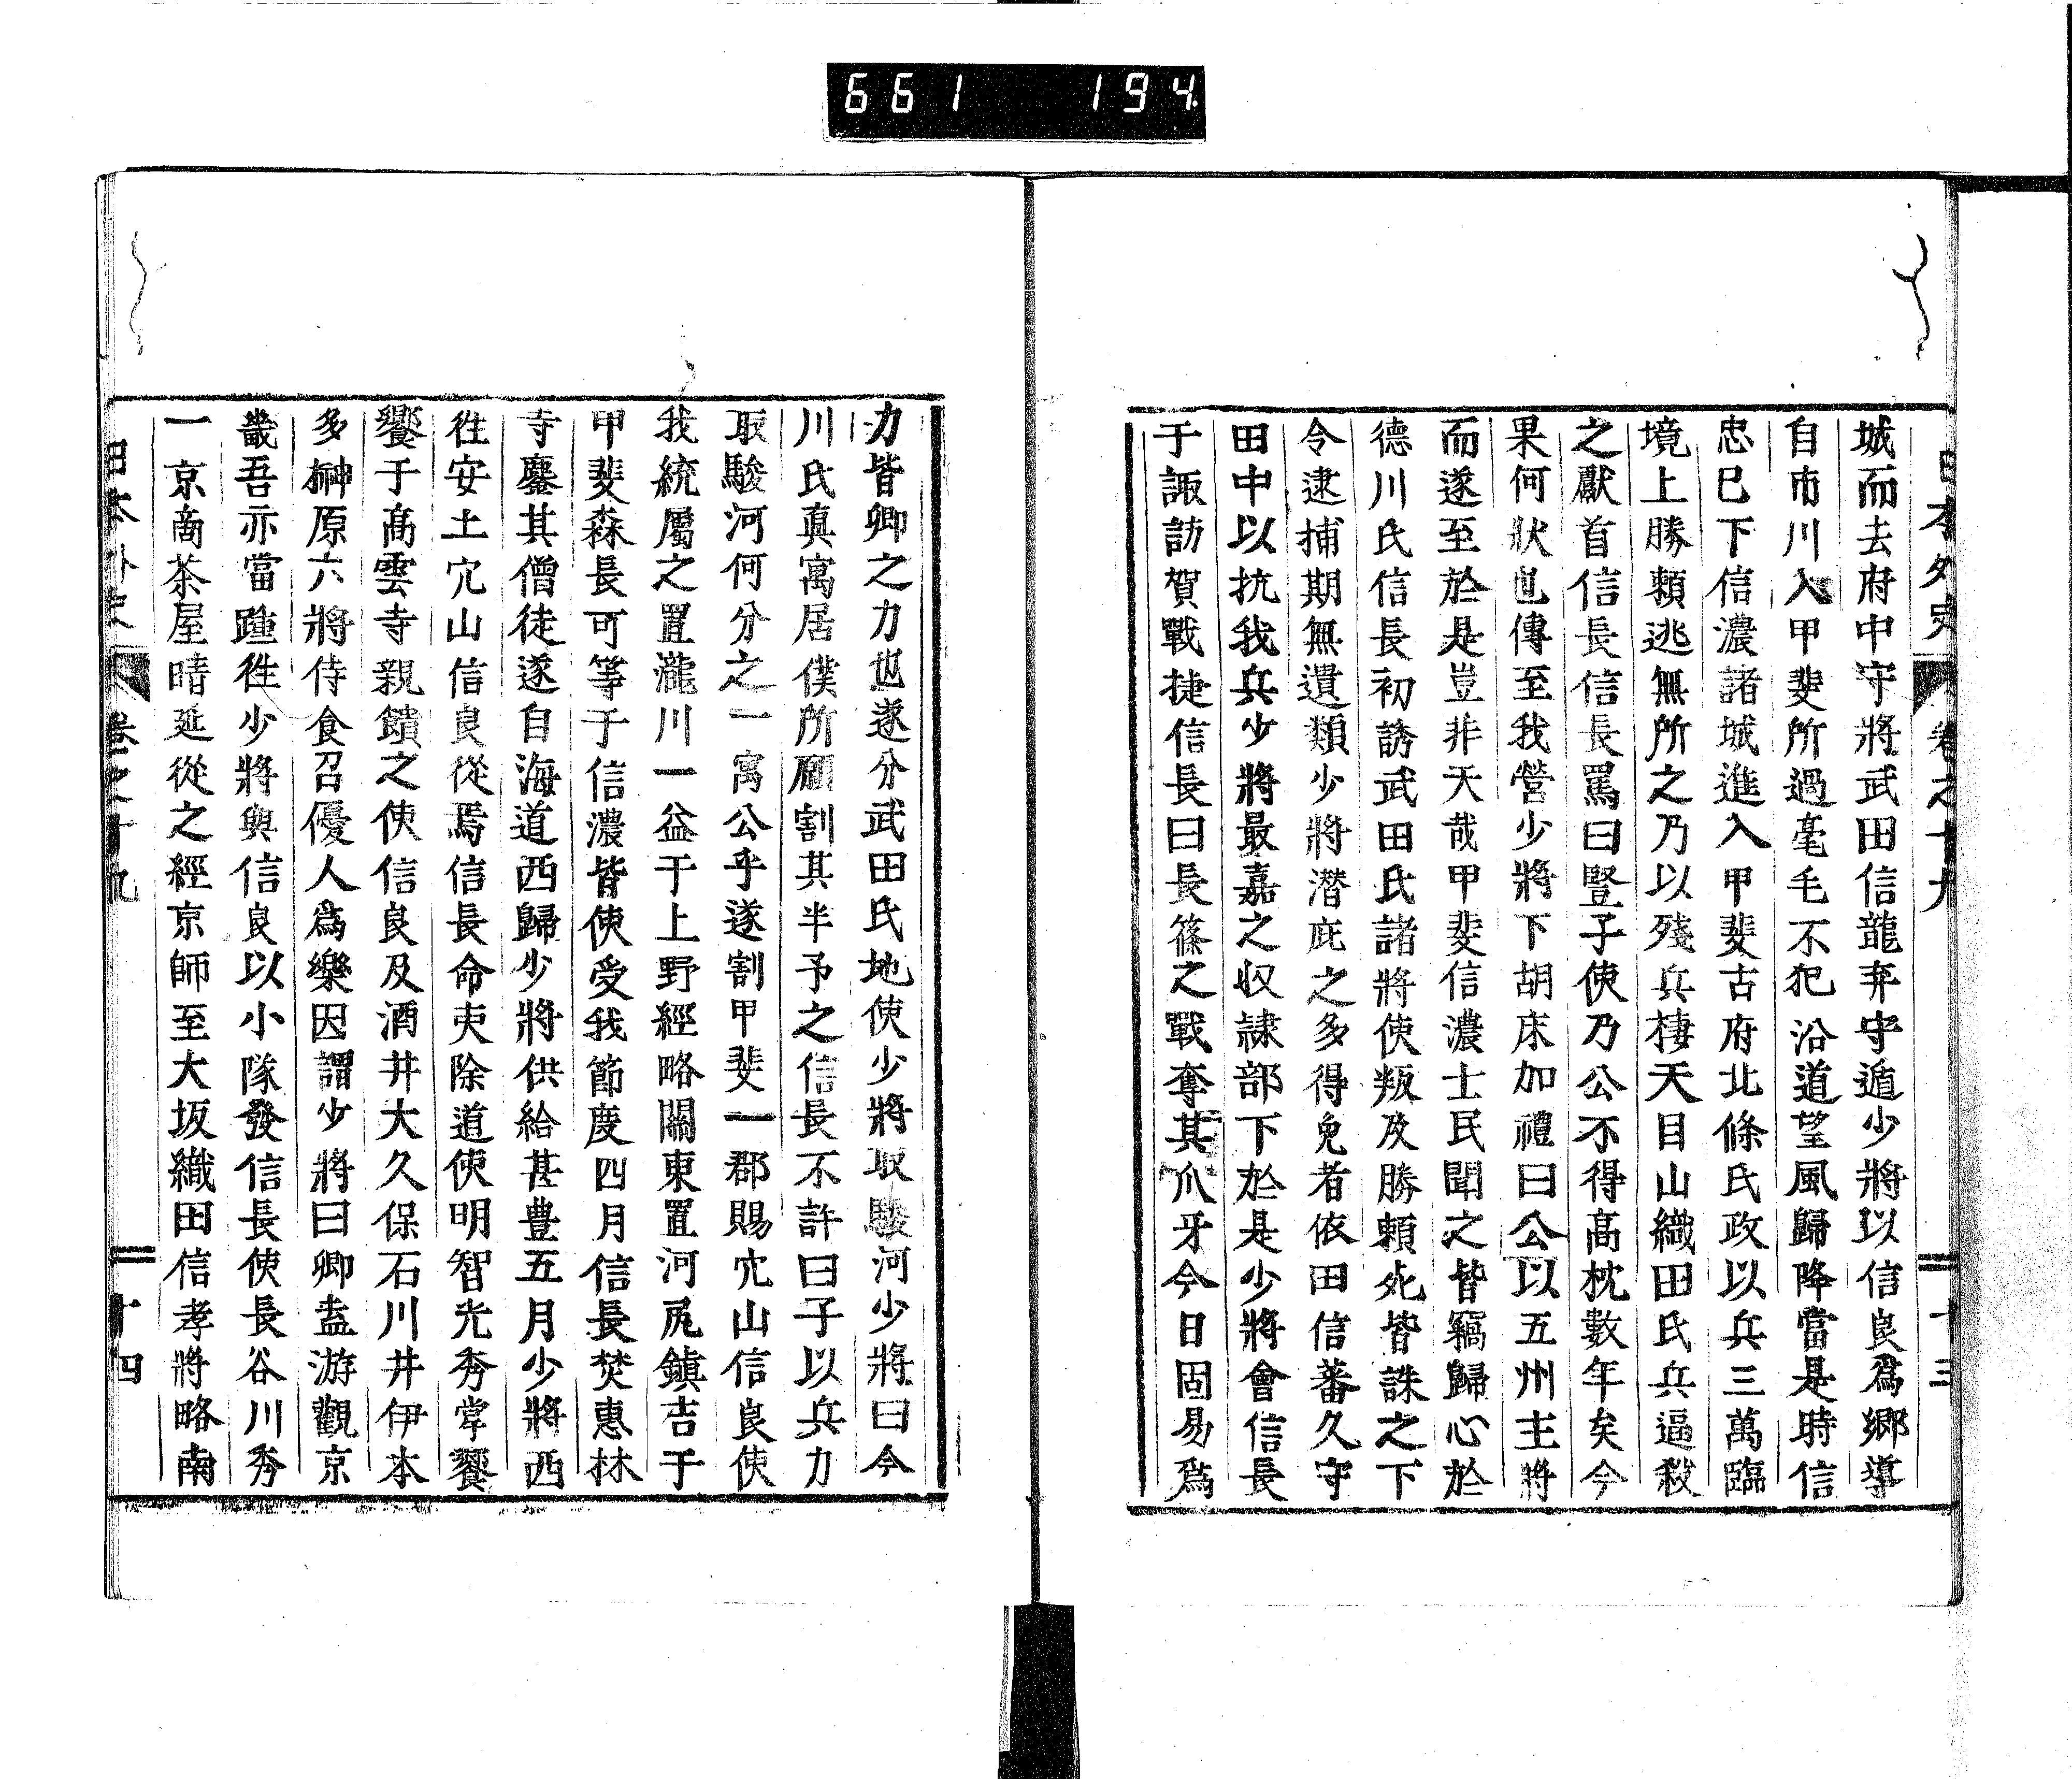 661 194
日本外史 卷之十九 十三
城而去府中守將武田信龍弃守遁少將以信良爲郷導
自市川入甲斐所過毫毛不犯沿道望風歸降當是時信
忠已下信濃諸城進入甲斐古府北條氏政以兵三萬臨
境上勝賴逃無所之乃以殘兵棲天目山織田氏兵逼殺
之獻首信長信長罵曰豎子使乃公不得高枕數年矣今
果何狀也傳至我營少將下胡床加禮曰公以五州主將
而遂至於是豈非天哉甲斐信濃士民聞之皆竊歸心於
德川氏信長初誘武田氏諸將使叛及勝賴死皆誅之下
令逮捕期無遺類少將潛庇之多得免者依田信蕃久守
田中以抗我兵少將最嘉之収隷部下於是少將會信長
于諏訪賀戰捷信長曰長篠之戰奪其爪牙今日固易爲
力皆卿之力也遂分武田氏地使少將取駿河少將曰今
川氏真寓居僕所願割其半予之信長不許曰子以兵力
取駿河何分之一寓公乎遂割甲斐一郡賜穴山信良使
我統屬之置瀧川一益于上野經略關東置河尻鎮吉于
甲斐森長可等于信濃皆使受我節度四月信長焚惠林
寺鏖其僧徒遂自海道西歸少將供給甚豊五月少將西
徃安土穴山信良從焉信長命吏除道使明智光秀掌饗
饗于高雲寺親饋之使信良及酒井大久保石川井伊本
多榊原六將侍食召優人爲樂因謂少將曰卿盍游觀京
畿吾亦當踵徃少將與信良以小隊發信長使長谷川秀
一京商茶屋晴延從之經京師至大坂織田信孝將略南
日本外史 卷之十九 十四